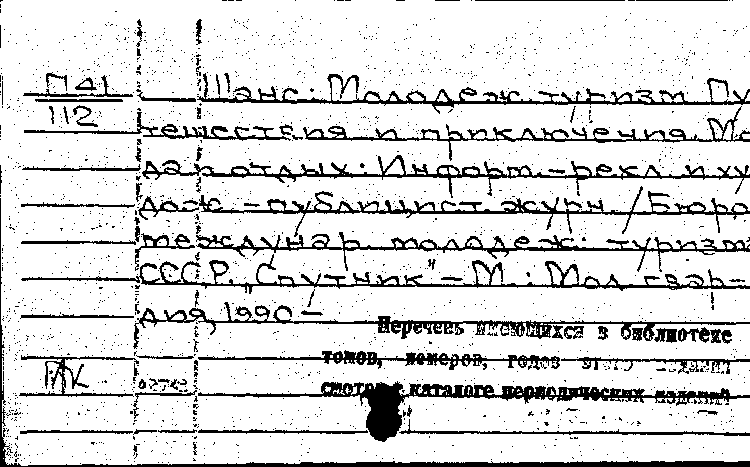 П41
112
Шанс: Молодеж. туризм Пу-
тешествия и приключения. Мо
да и отдых: Информ.-рекл и ху
дож -публицист. журн / Бюро
междунар. молодеж. туризма
СССР „Спутник" - М.: Мол гвар-
дия, 1990 -
Перечень имеющихся в библиотеке
томов, номеров, годов этого издания
смотри в каталоге периодических изданий